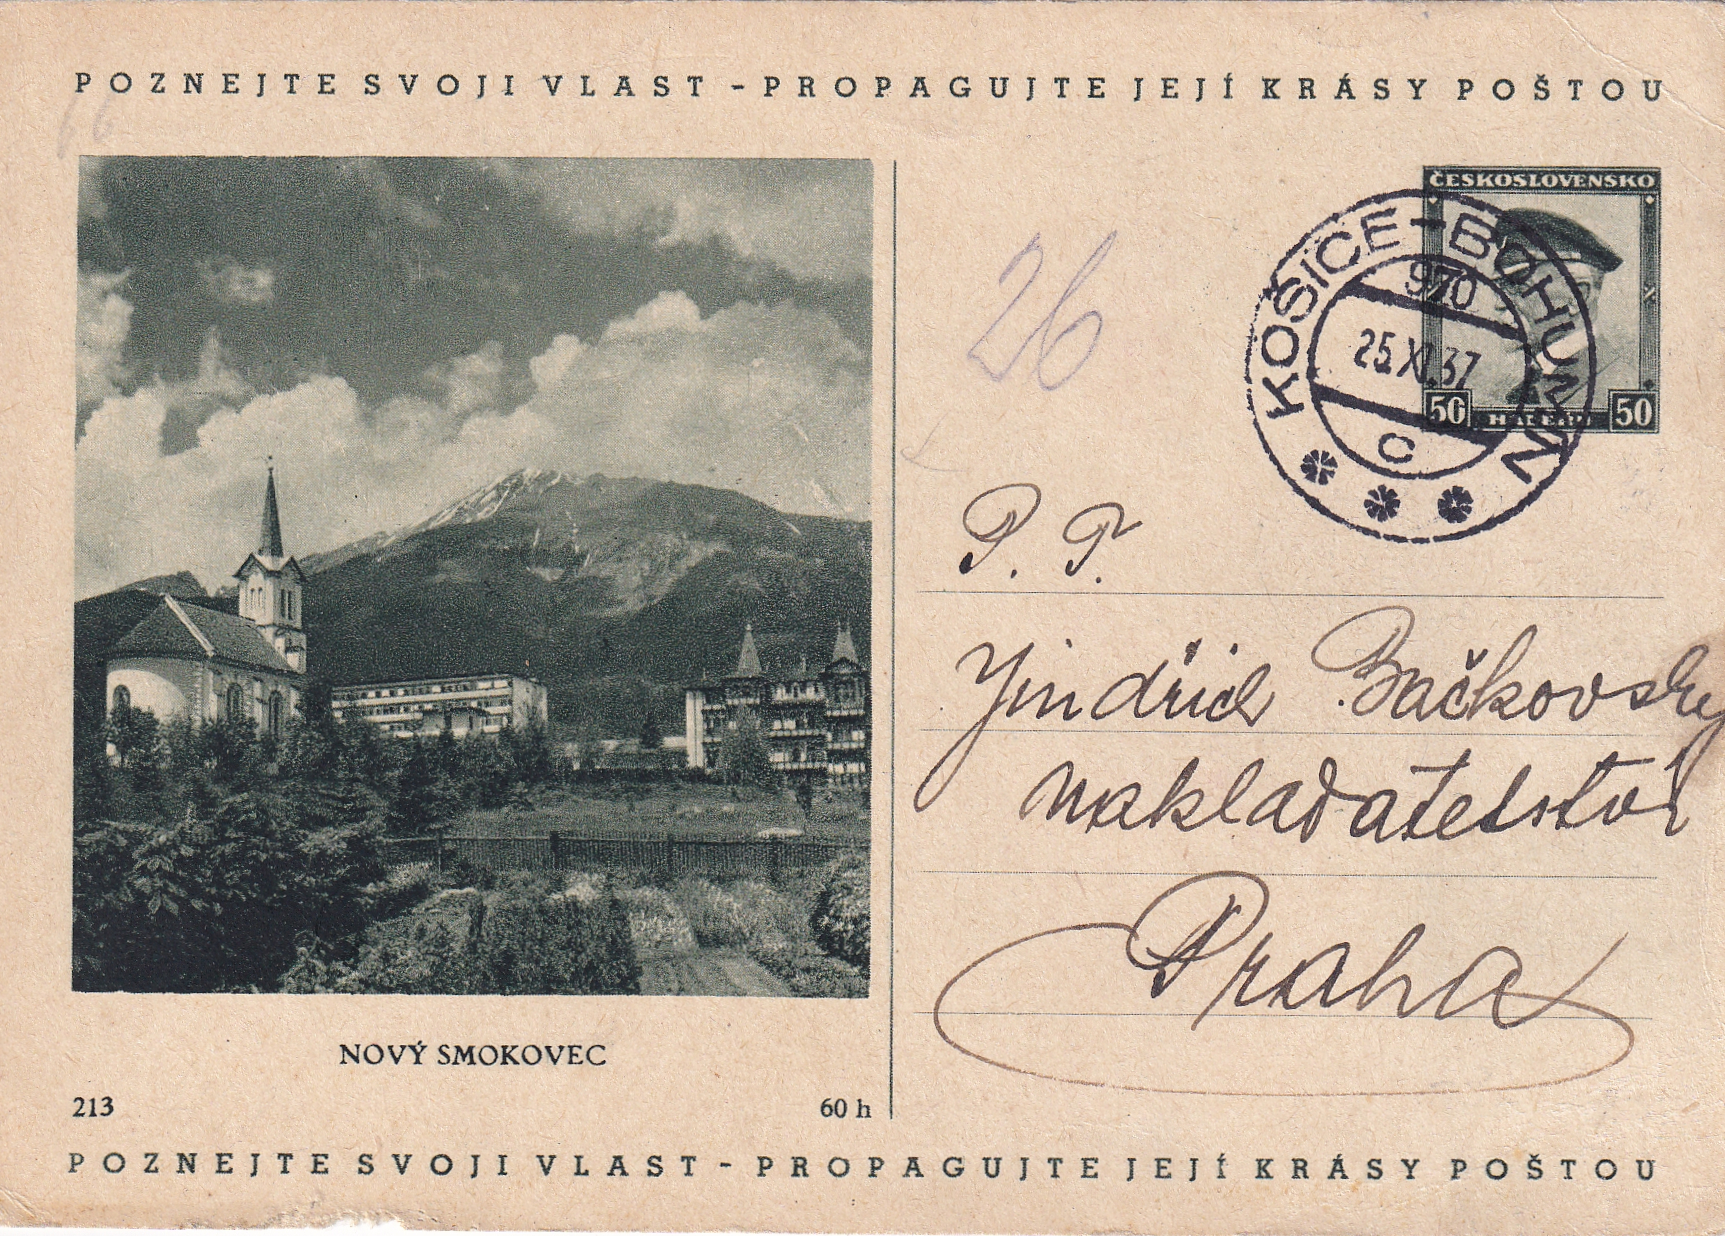 POZNEJTE SVOJI VLAST - PROPAGUJTE JEJÍ KRÁSY POŠTOU
66
ČESKOSLOVENSKO
KOŠICE-BOHUMÍN
970
25.XI.37
C
50 HALÉŘŮ 50
26
P. T.
Jindřich Bačkovský
nakladatelství
Praha
NOVÝ SMOKOVEC
213
60 h
POZNEJTE SVOJI VLAST - PROPAGUJTE JEJÍ KRÁSY POŠTOU